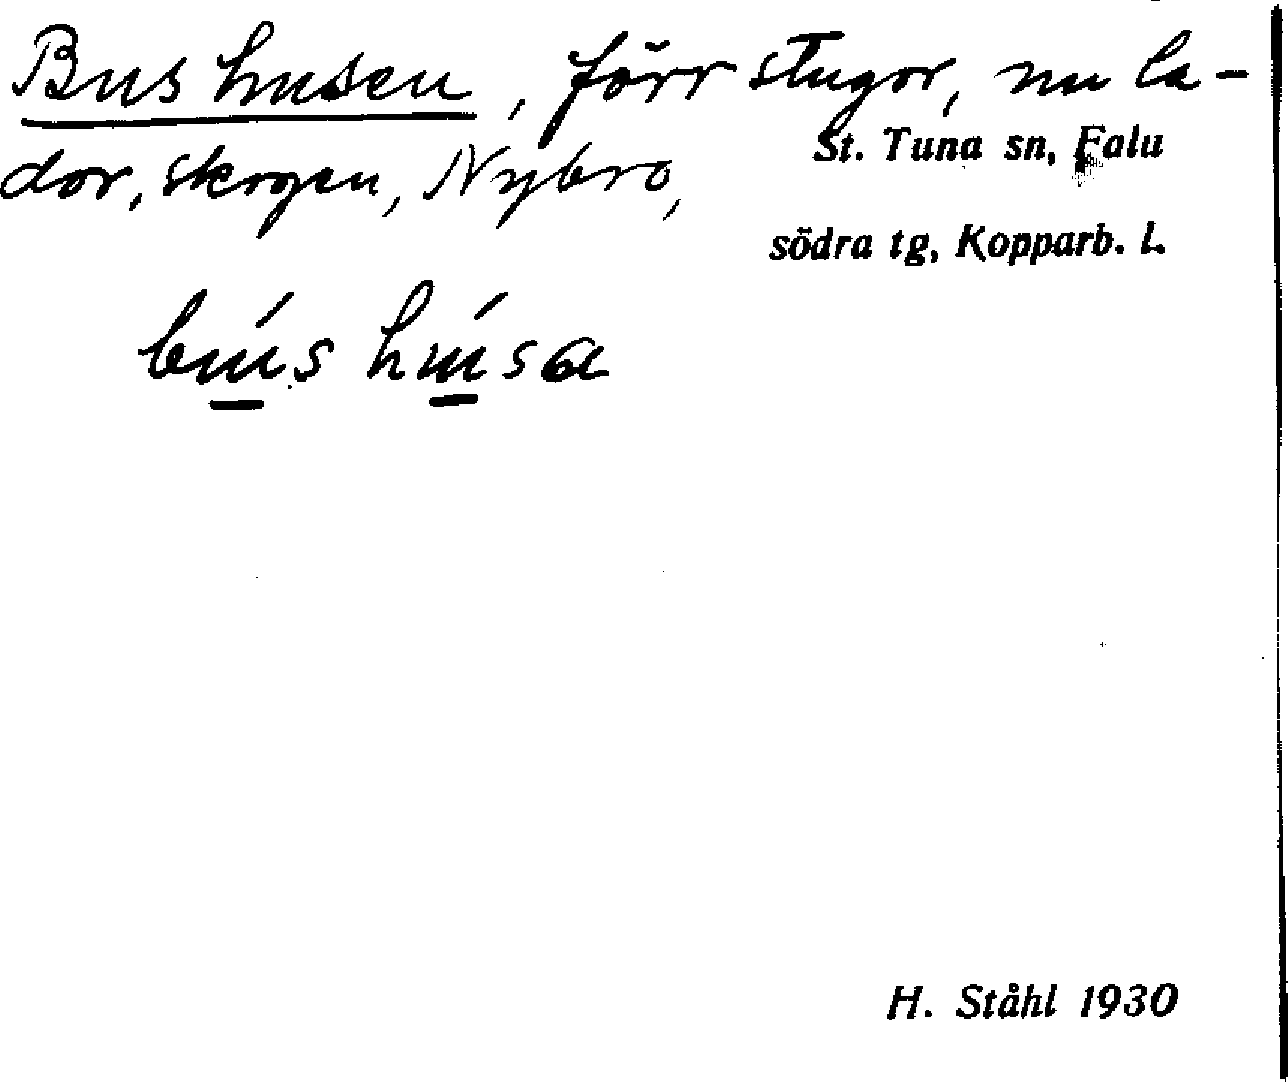 Bushusen, förr stugor, nu la-
dor, skogen, Nybro,
St. Tuna sn, Falu
södra tg, Kopparb. l.
bú̲s hú̲sa
H. Ståhl 1930